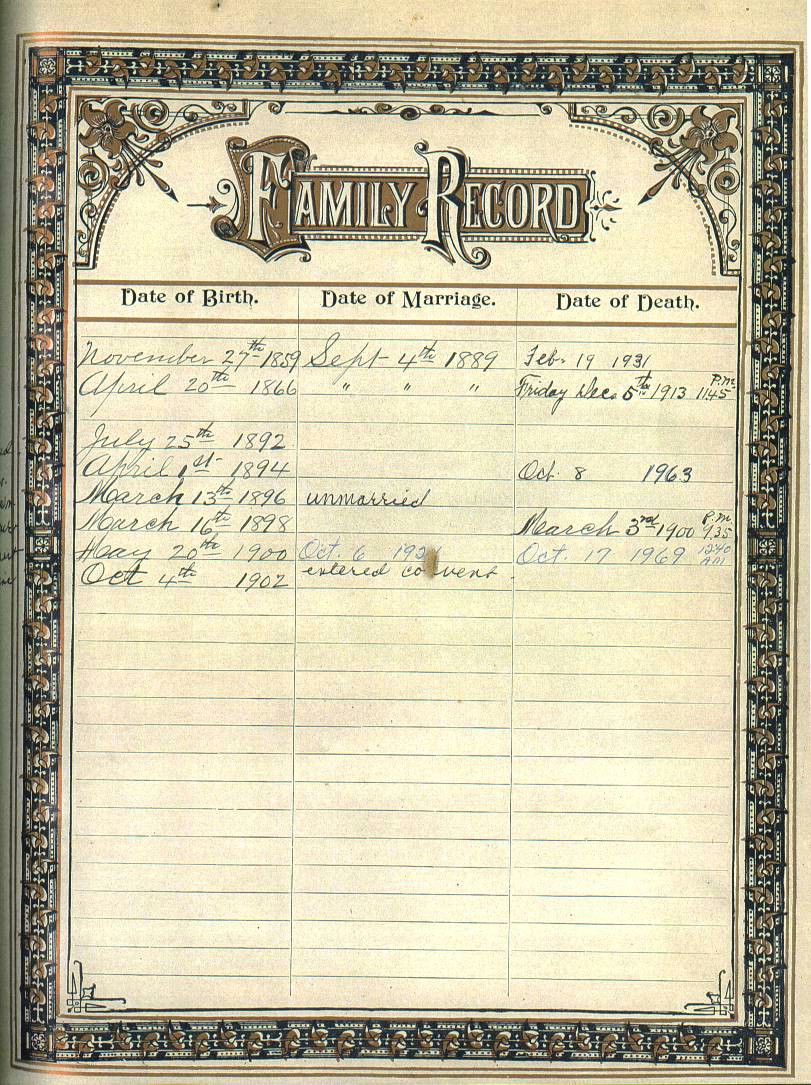 FAMILY RECORD
Date of Birth. Date of Marriage. Date of Death.
November 27th 1859 Sept 4th 1889 Feb. 19 1931
April 20th 1866 " " " Friday Dec. 5th 1913 11.45 P.M.
July 25th 1892
April 1st 1894 Oct. 8 1963
March 13th 1896 unmarried
March 16th 1898 March 3rd 1900 9.35 P.M.
May 20th 1900 Oct. 6 Oct. 17 1969 12:40 AM
Oct 4th 1902 entered convent